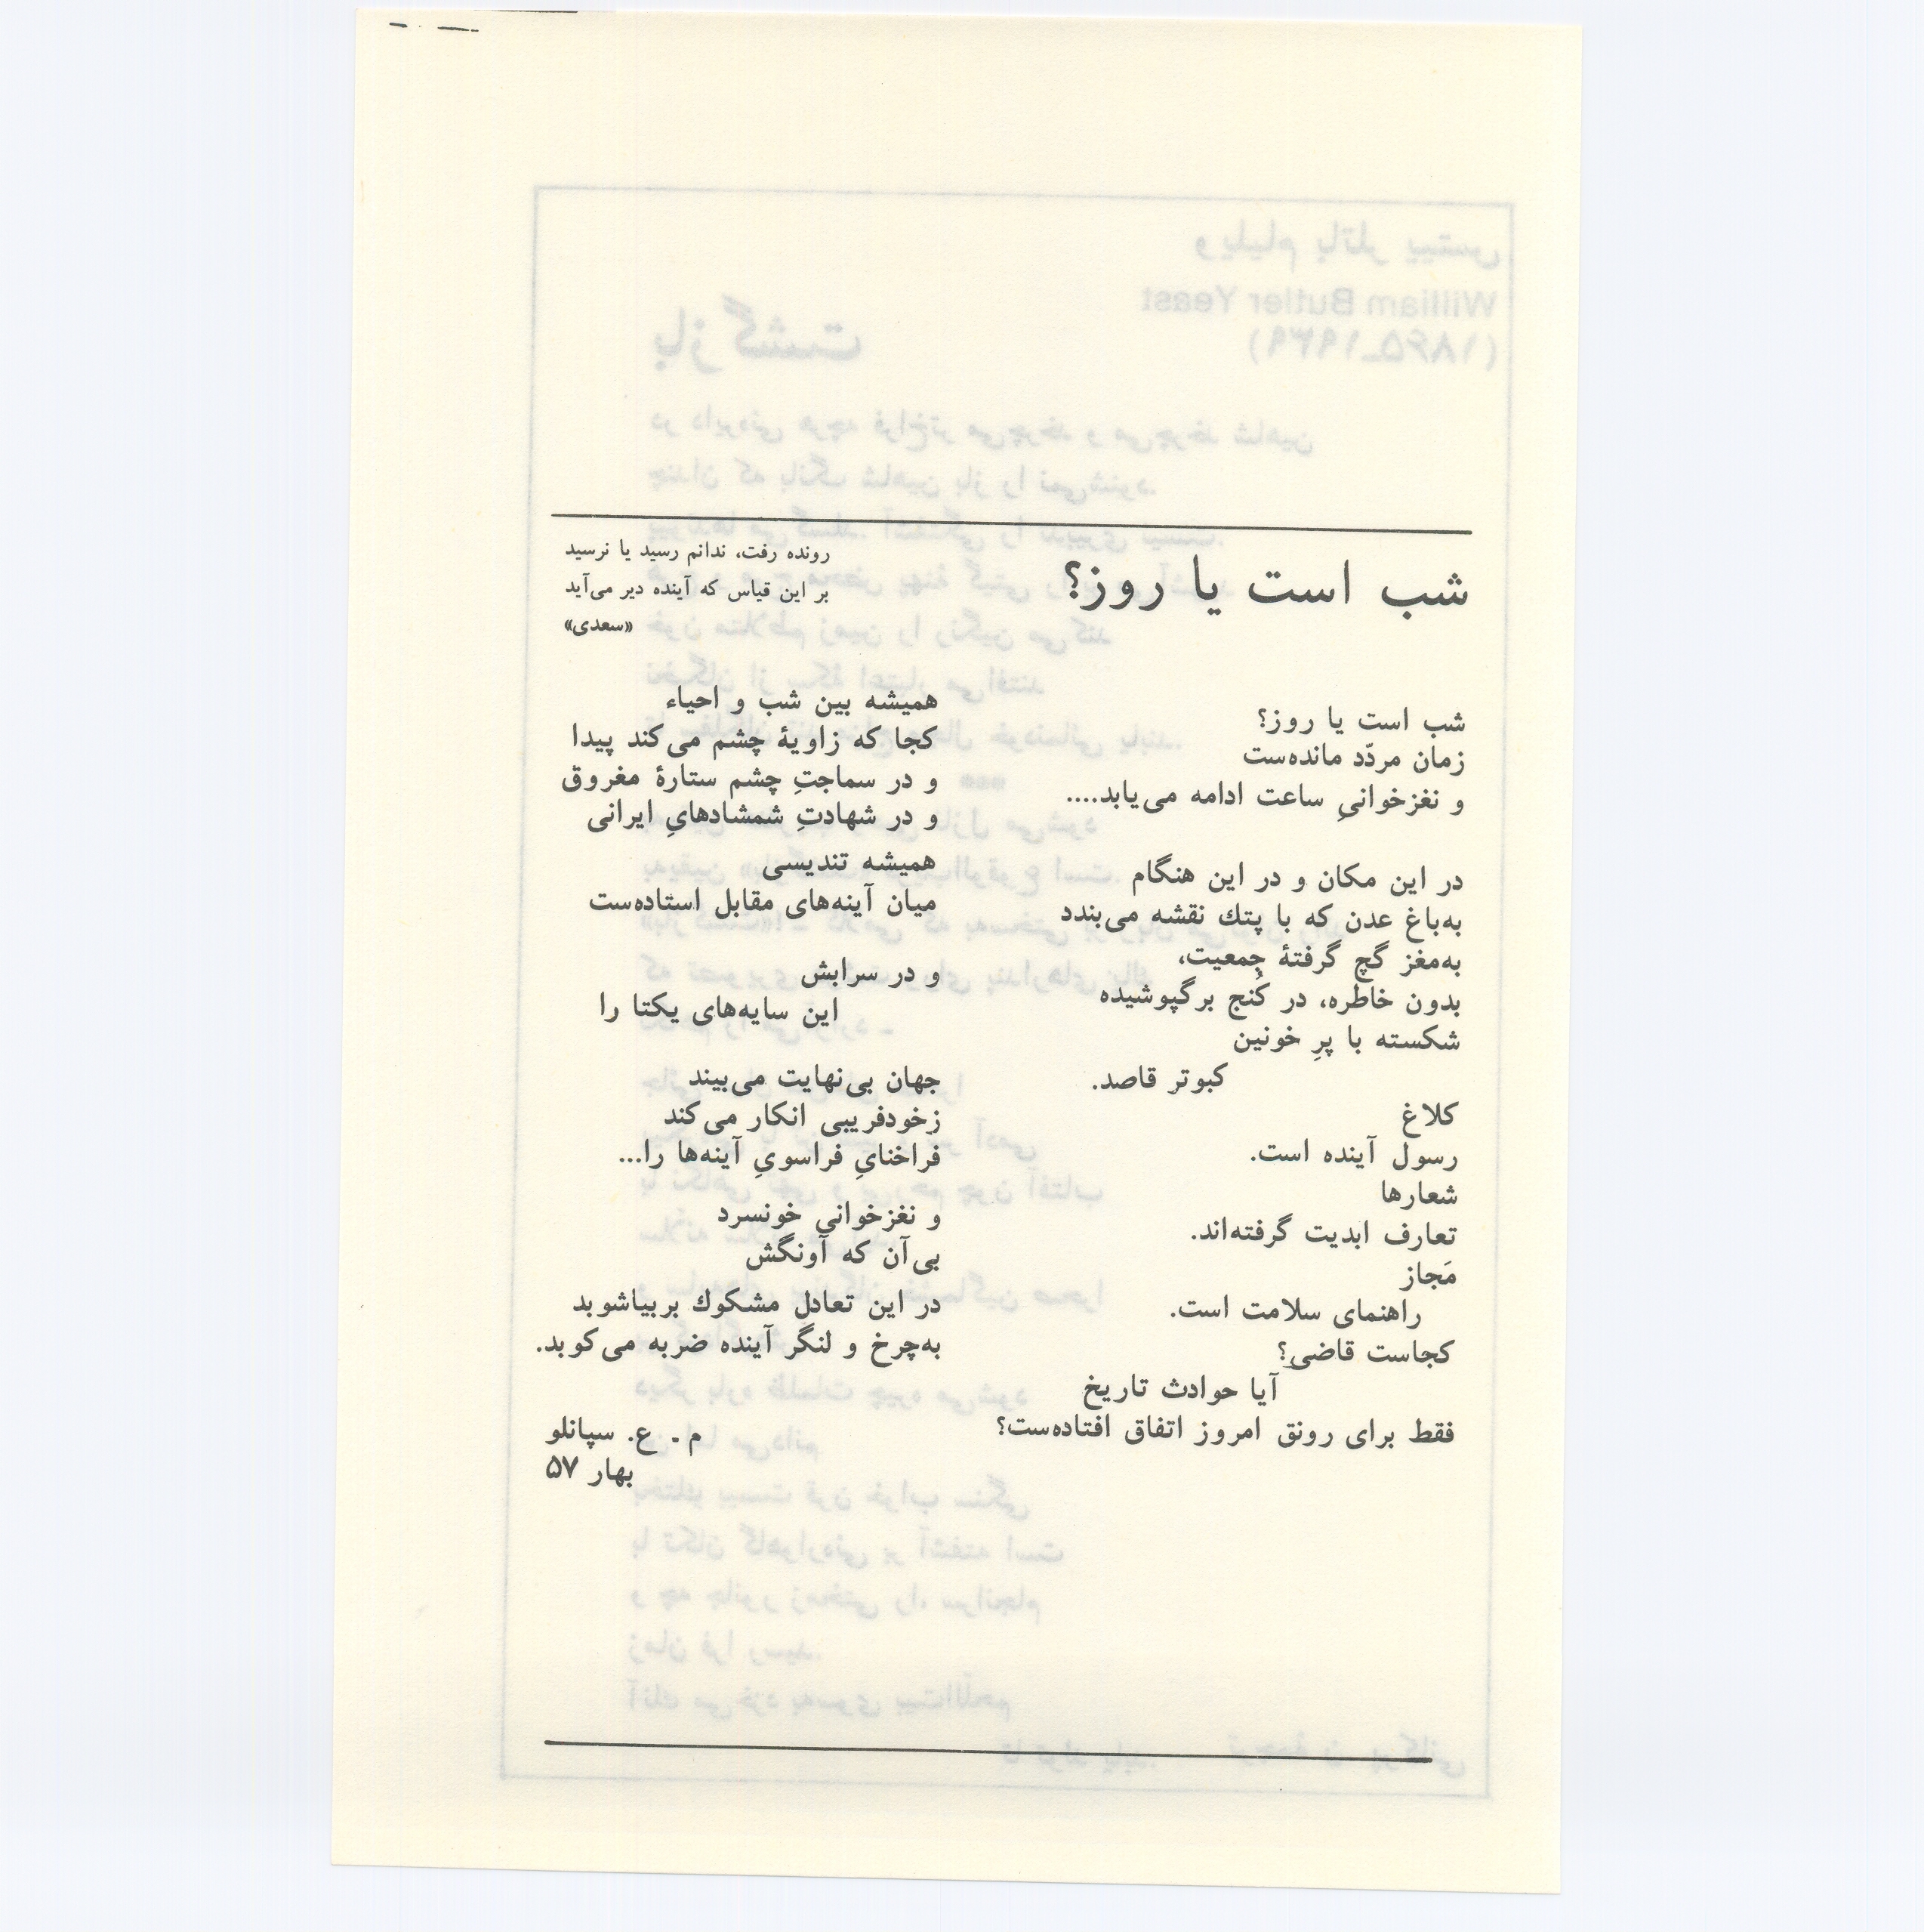 شب است یا روز؟
رونده رفت، ندانم رسید یا نرسید
بر این قیاس که آینده دیر می‌آید
«سعدی»
شب است یا روز؟
زمان مردّد مانده‌ست
و نغزخوانیِ ساعت ادامه می‌یابد....
در این مکان و در این هنگام
به‌باغ عدن که با پتك نقشه می‌بندد
به‌مغز گچ گرفتهٔ جمعیت،
بدون خاطره، در کُنج برگپوشیده
شکسته با پرِ خونین
کبوتر قاصد.
کلاغ
رسول آینده است.
شعارها
تعارف ابدیت گرفته‌اند.
مَجاز
راهنمای سلامت است.
کجاست قاضی؟
آیا حوادث تاریخ
فقط برای رونق امروز اتفاق افتاده‌ست؟
همیشه بین شب و احیاء
کجا که زاویهٔ چشم می‌کند پیدا
و در سماجتِ چشم ستارهٔ مغروق
و در شهادتِ شمشادهایِ ایرانی
همیشه تندیسی
میان آینه‌های مقابل استاده‌ست
و در سرابش
این سایه‌های یکتا را
جهان بی‌نهایت می‌بیند
زخودفریبی انکار می‌کند
فراخنایِ فراسویِ آینه‌ها را...
و نغزخوانی خونسرد
بی‌آن که آونگش
در این تعادل مشکوك بربیاشوبد
به‌چرخ و لنگر آینده ضربه می‌کوبد.
م . ع. سپانلو
بهار ۵۷